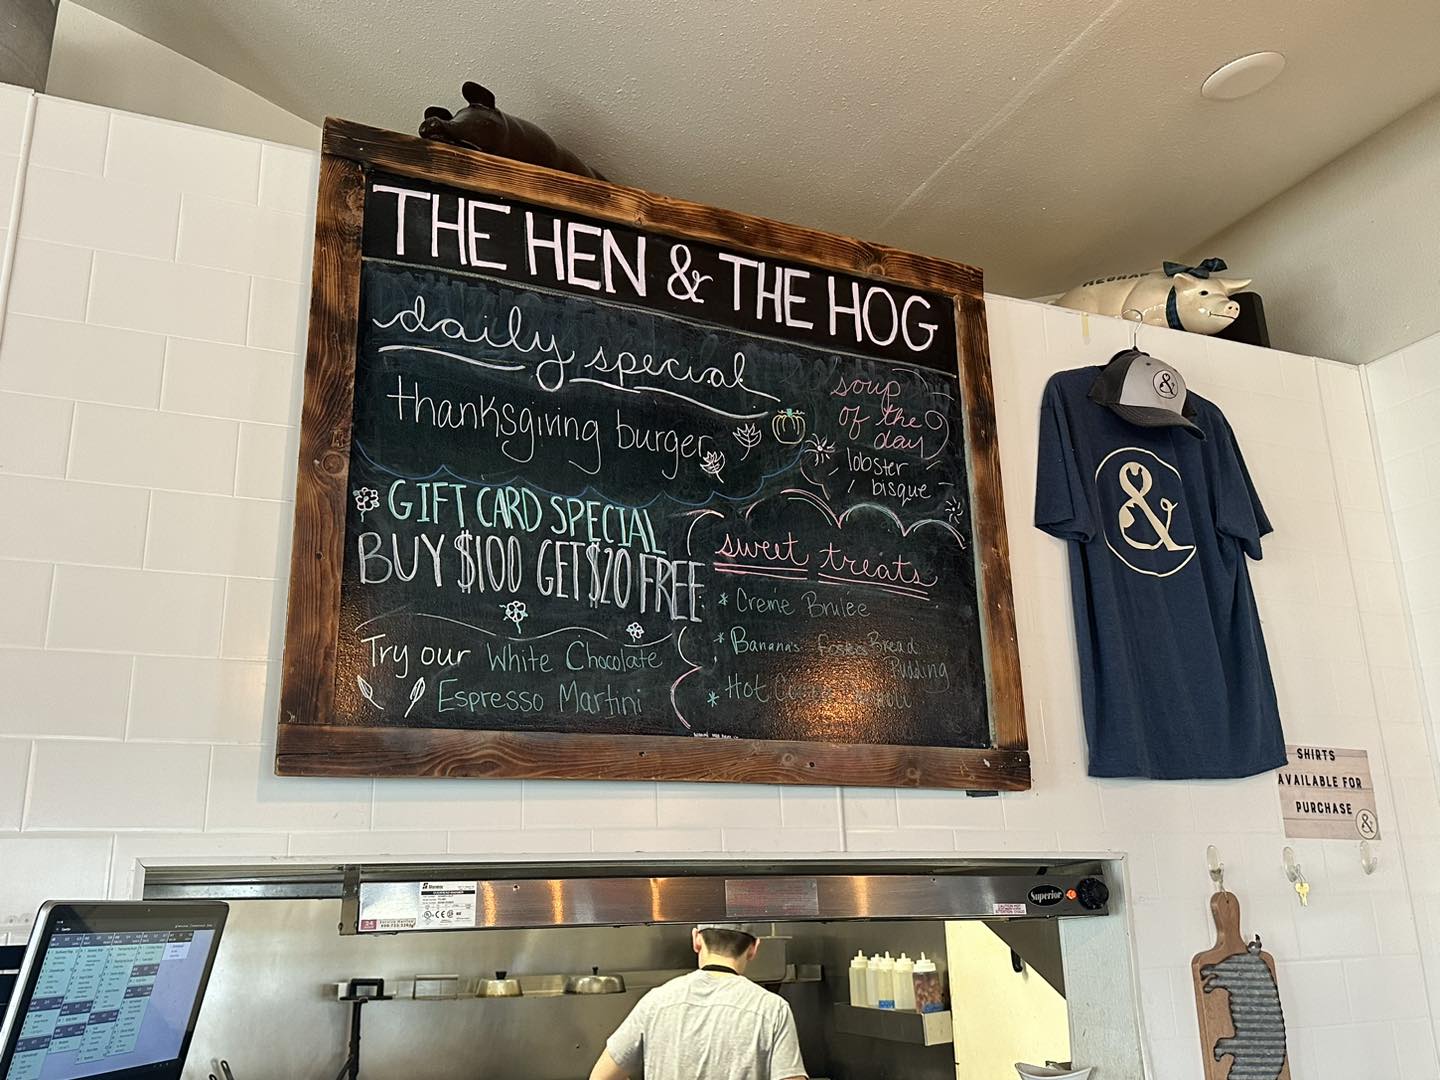 THE HEN & THE HOG
daily special
thanksgiving burger
soup
of the
day
lobster
bisque
GIFT CARD SPECIAL
BUY $100 GET $20 FREE
Try our White Chocolate
Espresso Martini
sweet treats
* Creme Brulée
* Banana's Foster Bread
Pudding
* Hot Cocoa
&
&
SHIRTS
AVAILABLE FOR
PURCHASE
&
Superior